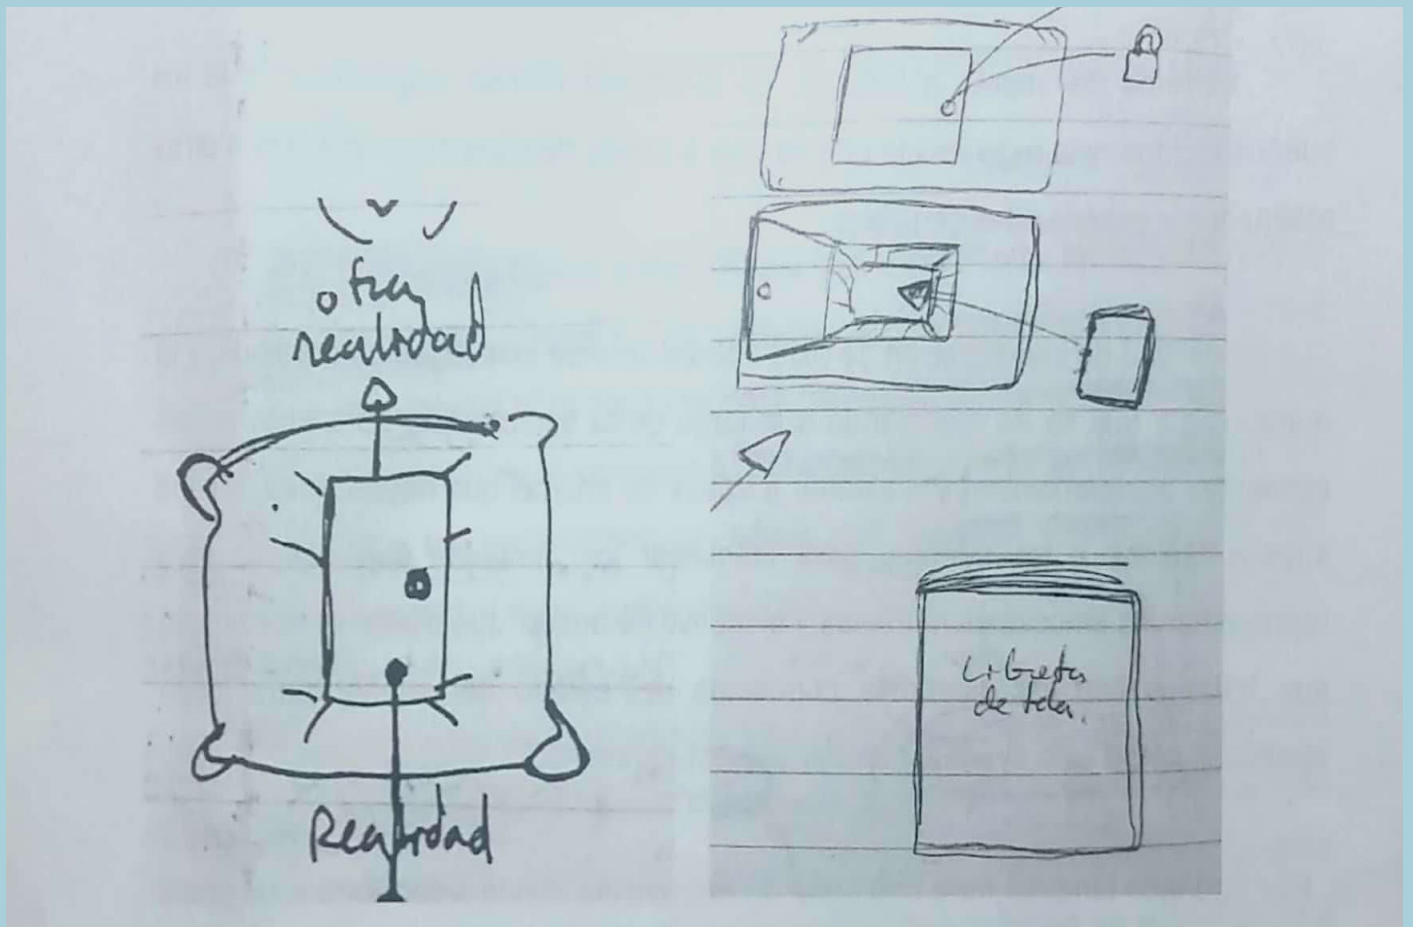 otra
realidad
Realidad
Libreta
de tela.